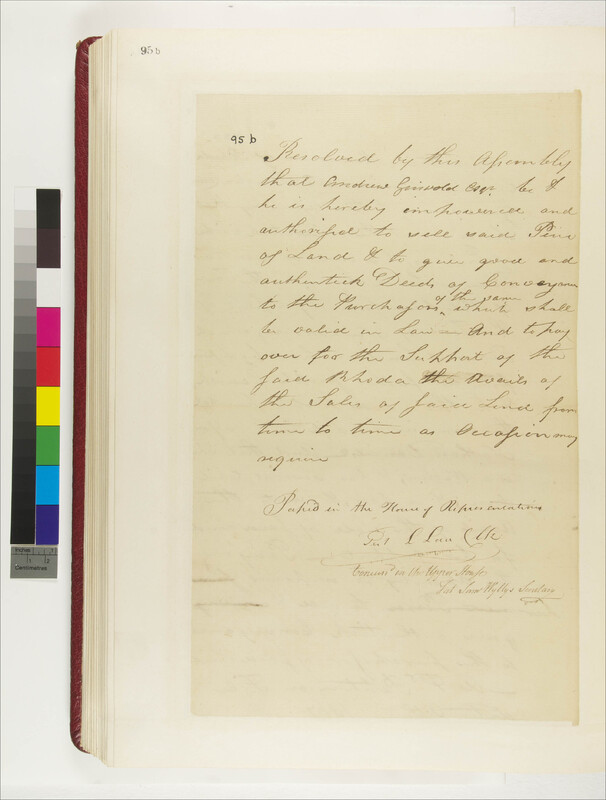 95b
95 b
Resolved by this Assembly
that Andrew Griswold Esqr. be &
he is hereby impowered and
authorised to sell said Piece
of Land & to give good and
authentick Deeds of Conveyance
to the Purchasors of the same which shall
be valid in Law – And to pay
over for the Support of the
said Rhoda the Avails of
the Sales of said Land from
time to time as Occasion may
require
Passed in the House of Representatives
Test Law Clk
Concurrd in the Upper House
Test Wyllys Secretary
Inches
1 2
Centimetres